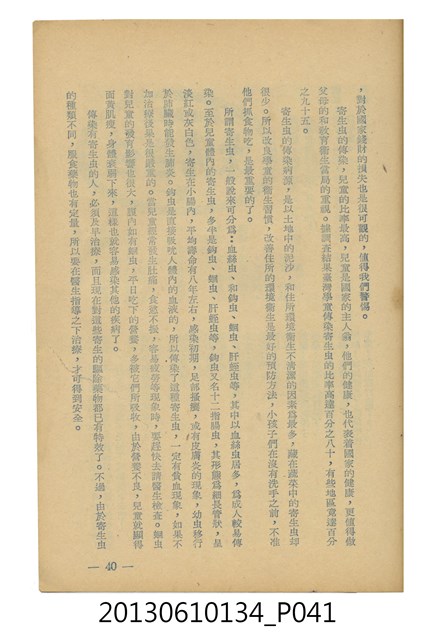 ，對於國家錢財的損失也是很可觀的，值得我們警惕。
寄生虫的傳染，兒童的比率最高，兒童是國家的主人翁，他們的健康，也代表着國家的健康，更值得做
父母的和教育衞生當局的重視。據調查結果臺灣學童傳染寄生虫的比率高達百分之八十，有些地區竟達百分
之九十五。
寄生虫的傳染病源，是以土地中的泥沙，和住所環境衞生不清潔的因素爲最多，藏在蔬菜中的寄生虫却
很少。所以改良學童的衞生習慣，改善住所的環境衞生是最好的預防方法，小孩子們在沒有洗手之前，不准
他們抓食物吃，是最重要的了。
所謂寄生虫，一般說來可分爲：血絲虫、和鈎虫、蛔虫、肝蛭虫等，其中以血絲虫居多，爲成人較易傳
染。至於兒童體內的寄生虫，多半是鈎虫、蛔虫、肝蛭虫等，鈎虫又名十二指腸虫，其形體爲細長管狀，呈
淡紅或灰白色，寄生在小腸內，平均壽命有八年左右，感染初期，足部搔癢，或有皮膚炎的現象，幼虫移行
於肺臟時能發生肺炎。鈎虫是直接吸吮人體內的血液的，所以傳染了這種寄生虫，一定有貧血現象，如果不
加治療後果是很嚴重的。當兒童經常發生肚痛，食慾不振，容易疲勞等現象時，要趕快去請醫生檢查。蛔虫
對兒童的發育影響也很大，腹內如有蛔虫，平日吃下的營養，多被它們所吸收，由於營養不良，兒童就顯得
面黃肌瘦，身體衰弱下來，這樣也就容易感染其他的疾病了。
傳染有寄生虫的人，必須及早治療，而且現在對這些寄生的驅除藥物都已有特效了。不過，由於寄生虫
的種類不同，服食藥物也有定量，所以要在醫生指導之下治療，才可得到安全。
— 40 —
20130610134_P041